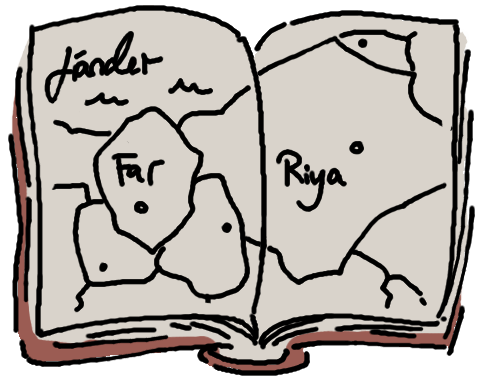 Länder
Far
Riya